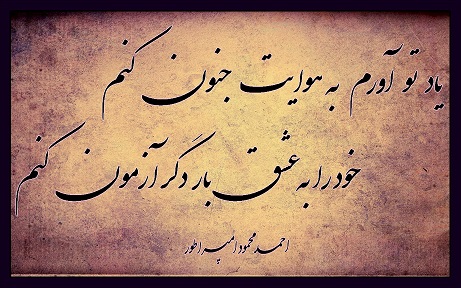 یاد تو آورم به هوایت جنون کنم
خود را به عشق بار دگر آزمون کنم
احمد محمود امپراطور